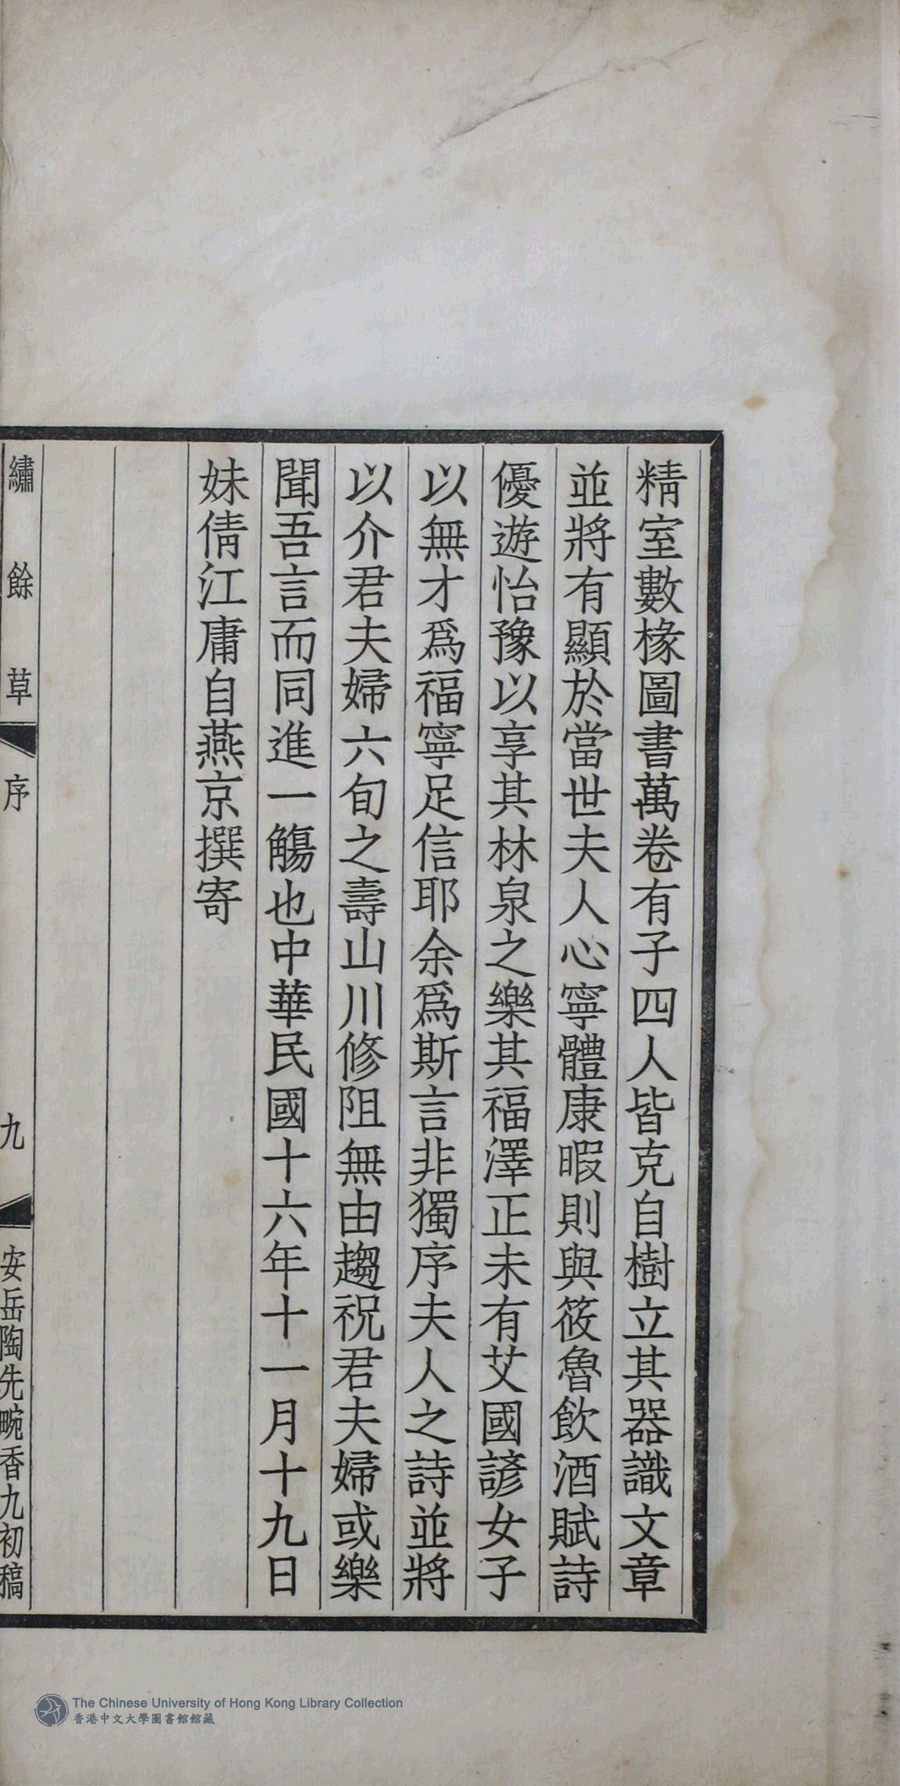 精室數椽圖書萬卷有子四人皆克自樹立其器識文章
並將有顯於當世夫人心寧體康暇則與筱魯飲酒賦詩
優遊怡豫以享其林泉之樂其福澤正未有艾國諺女子
以無才爲福寧足信耶余爲斯言非獨序夫人之詩並將
以介君夫婦六旬之壽山川修阻無由趨祝君夫婦或樂
聞吾言而同進一觴也中華民國十六年十一月十九日
妹倩江庸自燕京撰寄
繡餘草 序 九 安岳陶先畹香九初稿
The Chinese University of Hong Kong Library Collection
香港中文大學圖書館館藏